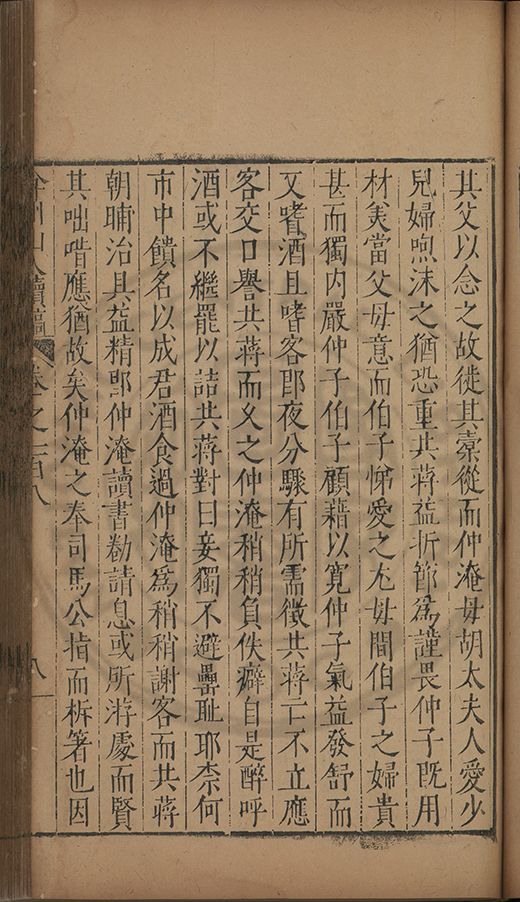 其父以念之故徙其橐從而仲淹母胡太夫人愛少
兒婦喣沫之猶恐重共蔣益折節爲謹畏仲子旣用
材美當父母意而伯子悌愛之尤母間伯子之婦貴
甚而獨内嚴仲子伯子顧藉以寛仲子氣益發舒而
又嗜酒且嗜客卽夜分驟有所需徵共蔣亡不立應
客交口譽共蔣而久之仲淹稍稍負佚癖自是醉呼
酒或不繼罷以詰共蔣對曰妾獨不避罍耻耶柰何
市中饋名以成君酒食過仲淹爲稍稍謝客而共蔣
朝晡治具益精卽仲淹讀書勌請息或所游處而賢
其咄喈應猶故矣仲淹之奉司馬公指而析箸也因
弇州山人續稿 卷之一百八 八